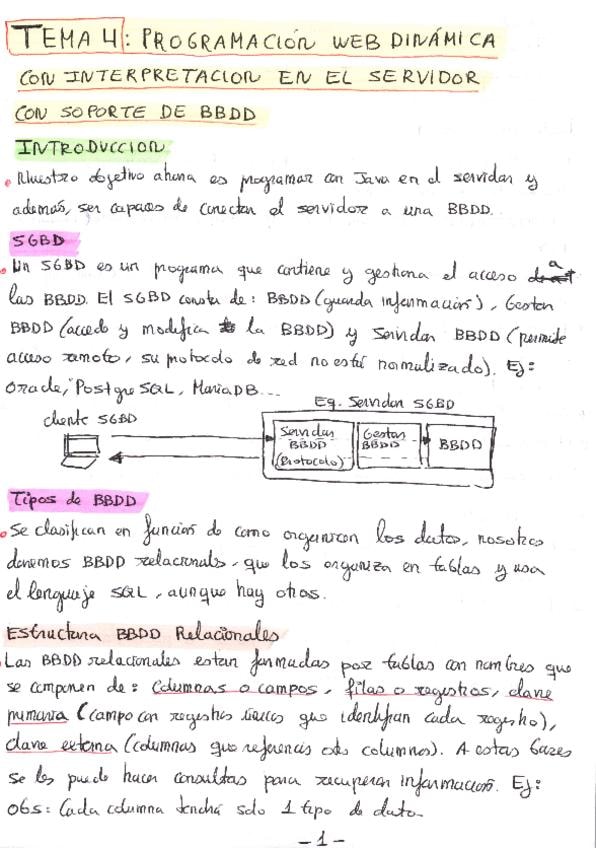 TEMA 4: PROGRAMACIÓN WEB DINÁMICA
CON INTERPRETACION EN EL SERVIDOR
CON SOPORTE DE BBDD
INTRODUCCION
• Nuestro objetivo ahora es programar con Java en el servidor y
además, ser capaces de conectar el servidor a una BBDD.
SGBD
• Un SGBD es un programa que contiene y gestiona el acceso a
las BBDD. El SGBD consta de: BBDD (guarda información), Gestor
BBDD (accede y modifica la BBDD) y Servidor BBDD (permite
acceso remoto, su protocolo de red no está normalizado). Ej:
Oracle, PostgreSQL, MariaDB...
Eq. Servidor SGBD
cliente SGBD
Servidor BBDD (Protocolo)
Gestor BBDD
BBDD
Tipos de BBDD
• Se clasifican en función de como organizan los datos, nosotros
daremos BBDD relacionales, que los organiza en tablas y usa
el lenguaje SQL, aunque hay otras.
Estructura BBDD Relacionales
• Las BBDD relacionales estan formadas por tablas con nombres que
se componen de: columnas o campos, filas o registros, clave
primaria (campo con registros únicos que identifican cada registro),
clave externa (columnas que referencia otras columnas). A estas bases
se les puede hacer consultas para recuperar información. Ej:
Obs: Cada columna tendrá solo 1 tipo de dato.
- 1 -